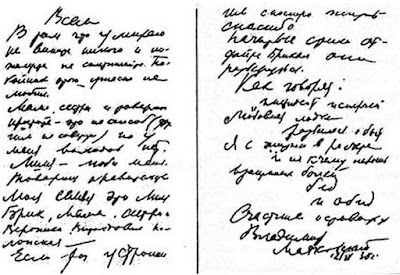 Всем
В том что умираю
не вините никого и по-
жалуйста не сплетничайте. По-
койник этого ужасно не
любил.
Мама, сестры и товарищи
простите – это не способ (дру-
гим не советую) но у
меня выходов нет.
Лиля – люби меня.
Товарищ правительство
моя семья это Лиля
Брик, мама, сестры и
Вероника Витольдовна По-
лонская.
Если ты устроишь
им сносную жизнь –
спасибо
Начатые стихи от-
дайте Брикам они
разберутся.
Как говорят:
инцидент исперчен
Любовная лодка
разбилась о быт
Я с жизнью в расчете
и не к чему перечень
взаимных болей
бед
и обид
Счастливо оставаться
Владимир
Маяковский
12/IV 30 г.